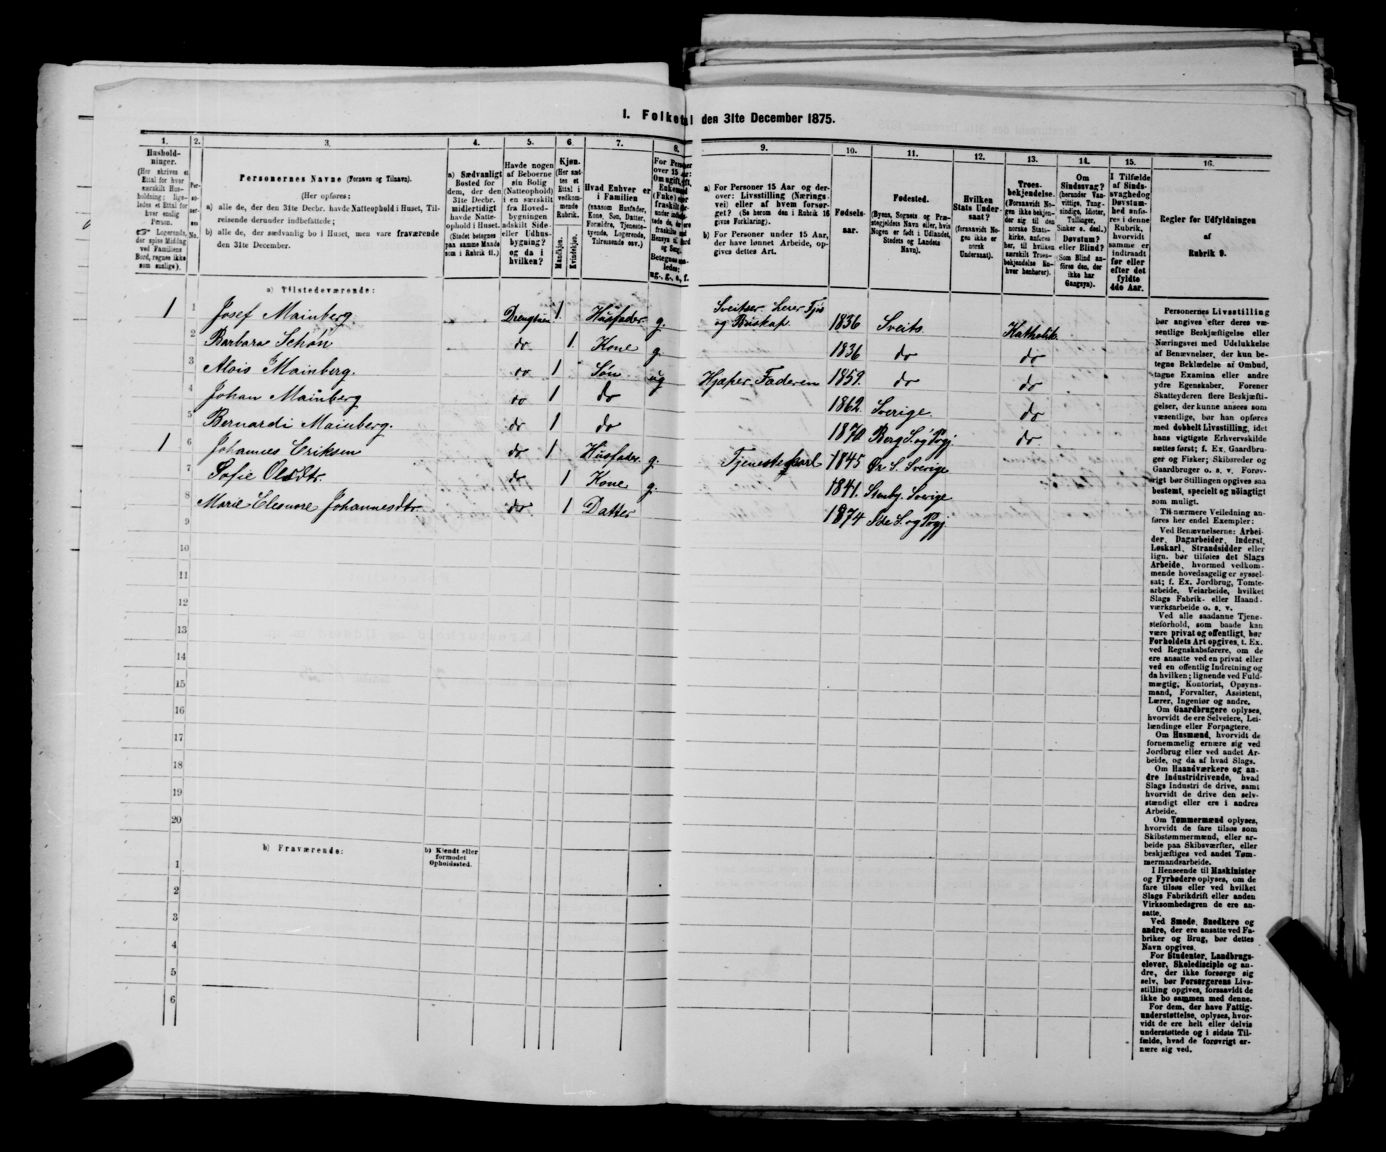 I. Folketal den 31te December 1875.
1. 2. 3. 4. 5. 6. 7. 8. 9. 10. 11. 12. 13. 14. 15. 16.
Husholdninger.
(Her skrives et Ettal for hver særskilt Husholdning; ligeledes et Ettal for hver enslig Person.
☞ Logerende, der spise Middag ved Familiens Bord, regnes ikke som enslige).
Personernes Navne (Fornavn og Tilnavn).
(Her opføres:
a) alle de, der den 31te Decbr. havde Natteophold i Huset, Tilreisende derunder indbefattede;
b) alle de, der sædvanlig bo i Huset, men vare fraværende den 31te December.
a) Sædvanligt Bosted for dem, der den 31te Decbr. midlertidigt havde Natteophold i Huset.
(Stedet betegnes paa samme Maade som i Rubrik 11.)
Havde nogen af Beboerne sin Bolig (Natteophold) i en særskilt fra Hovedbygningen adskilt Side- eller Udhusbygning? og da i hvilken?
Kjøn.
(Her sættes et Ettal i vedkommende Rubrik.
Mandkjøn.
Kvindekjøn.
Hvad Enhver er i Familien
(saasom Husfader, Kone, Søn, Datter, Forældre, Tjenestetyende, Logerende, Tilreisende osv.)
a) For Personer 15 Aar og derover: Livsstilling (Næringsvei) eller af hvem forsørget? (Se herom den i Rubrik 16 givne Forklaring).
b) For Personer under 15 Aar, der have lønnet Arbeide, opgives dettes Art.
Fødselsaar.
Fødested.
(Byens, Sognets og Præstegjeldets Navn eller, hvis Nogen er født i Udlandet, Stedets og Landets Navn).
Hvilken Stats Undersaat?
(forsaavidt Nogen ikke er norsk Undersaat).
Troesbekjendelse.
(Forsaavidt Nogen ikke bekjender sig til den norske Statskirke, anføres her, til hvilken særskilt Troesbekjendelse Enhver henhører).
Om Sindssvag?
(herunder Vanvittige, Tungsindige, Idioter, Tullinger, Sinker o. desl.)
Døvstum? eller Blind?
(Som Blind anføres den, der ikke har Gangsyn).
I Tilfælde af Sindssvaghed og Døvstumhed anføres i denne Rubrik, hvorvidt samme er indtraadt før eller efter det fyldte 4de Aar.
Regler for Udfyldningen af Rubrik 9.
a) Tilstedeværende:
1 1 Josef Mainberg. Drengstuen 1 Husfader g. Sveitser. Lerer Fjøs og Buskap. 1836 Sveits. Katholik.
2 Barbara Schøn do 1 Kone g. 1836 do do
3 Alois Mainberg. do 1 Søn ug Hjælper Faderen 1859. do do
4 Johan Mainberg do 1 do 1862 Sverige. do
5 Bernardi Mainberg. do 1 do 1870 Berg S. og Pgj. do
1 6 Johannes Eriksen do 1 Husfader g. Tjenestekarl 1845 Ør S. Sverige
7 Sofie Olsdtr. do 1 Kone g. 1841. Stenby. Sverige
8 Marie Elenore Johannesdtr do 1 Datter 1874 Ide S. og Pgj.
9
10
11
12
13
14
15
16
17
18
19
20
b) Fraværende:
b) Kjendt eller formodet Opholdssted.
1
2
3
4
5
6
Personernes Livsstilling bør angives efter deres væsentlige Beskjæftigelse eller Næringsvei med Udelukkelse af Benævnelser, der kun betegne Beklædelse af Ombud, tagne Examina eller andre ydre Egenskaber. Forener Skatteyderen flere Beskjæftigelser, der kunne ansees som væsentlige, bør han opføres med dobbelt Livsstilling, idet hans vigtigste Erhvervskilde sættes først; f. Ex. Gaardbruger og Fisker; Skibsreder og Gaardbruger o. s. v. Forøvrigt bør Stillingen opgives saa bestemt, specielt og nøiagtigt som muligt.
Til nærmere Veiledning anføres her endel Exempler:
Ved Benævnelserne: Arbeider, Dagarbeider, Inderst, Løskarl, Strandsidder eller lign. bør tilføies det Slags Arbeide, hvormed vedkommende hovedsagelig er sysselsat; f. Ex. Jordbrug, Tomtearbeide, Veiarbeide, hvilket Slags Fabrik- eller Haandværksarbeide o. s. v.
Ved alle saadanne Tjenesteforhold, som baade kan være privat og offentligt, bør Forholdets Art opgives, t. Ex. ved Regnskabsførere, om de ere ansatte ved en privat eller ved en offentlig Indretning og da hvilken; lignende ved Fuldmægtig, Kontorist, Opsynsmand, Forvalter, Assistent, Lærer, Ingeniør og andre.
Om Gaardbrugere oplyses, hvorvidt de ere Selveiere, Leilændinge eller Forpagtere.
Om Husmænd, hvorvidt de fornemmelig ernære sig ved Jordbrug eller ved andet Arbeide, og da af hvad Slags.
Om Haandværkere og andre Industridrivende, hvad Slags Industri de drive, samt hvorvidt de drive den selvstændigt eller ere i andres Arbeide.
Om Tømmermænd oplyses, hvorvidt de fare tilsøs som Skibstømmermænd, eller arbeide paa Skibsværfter, eller beskjæftiges ved andet Tømmermandsarbeide.
I Henseende til Maskinister og Fyrbødere oplyses, om de fare tilsøs eller ved hvilket Slags Fabrikdrift eller anden Virksomhedsgren de ere ansatte.
Ved Smede, Snedkere og andre, der ere ansatte ved Fabriker og Brug, bør dettes Navn opgives.
For Studenter, Landbrugselever, Skoledisciple og andre, der ikke forsørge sig selv, bør Forsørgerens Livsstilling opgives, forsaavidt de ikke bo sammen med denne.
For dem, der have Fattigunderstøttelse, oplyses, hvorvidt de ere helt eller delvis understøttede og i sidste Tilfælde, hvad de forøvrigt ernære sig ved.